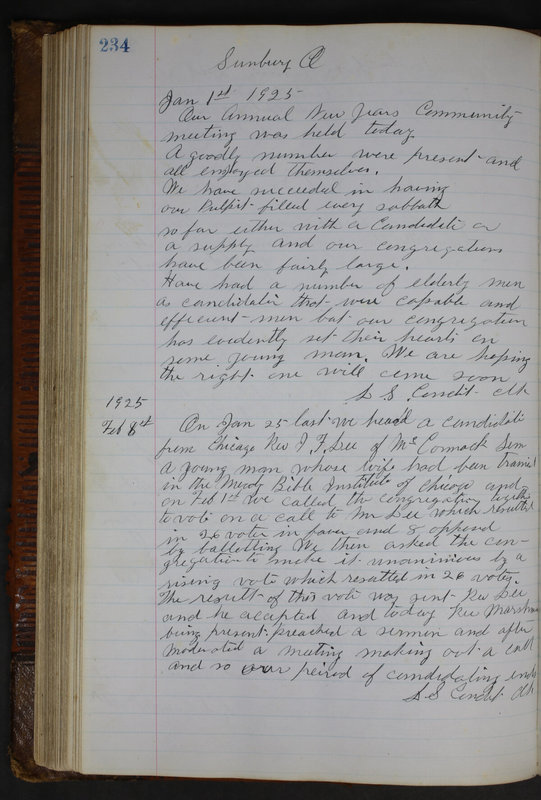 234
Sunbury O
Jan 1st 1925
Our Annual New Years Community
meeting was held today
A goodly number were present and
all enjoyed themselves.
We have succeeded in having
our Pulpit filled every sabbath
so far either with a Candidate or
a supply and our congregations
have been fairly large.
Have had a number of elderly men
as candidates that were capable and
efficient men but our congregation
has evidently set their hearts on
some young man. We are hoping
the right one will come soon
S S Condit clk
1925
Feb 8th
On Jan 25 last we heard a candidate
from Chicago Rev J F. Lee of Mc Cormack Sem
a young man whose wife had been traind
in the Moody Bible Institute of Chicago and
on Feb 1st we called the congregation together
to vote on a call to Mr Lee which resulted
in 26 votes in favor and 8 oppond
by balloting We then asked the con-
gregation to make it unanimous by a
rising vote which resulted in 26 votes.
The result of this vote was sent Rev Lee
and he accepted and today Rev Marshman
being present preached a sermon and after
Moderated a meeting making out a call
and so our peirod of candidating ends
S S Condit Clk